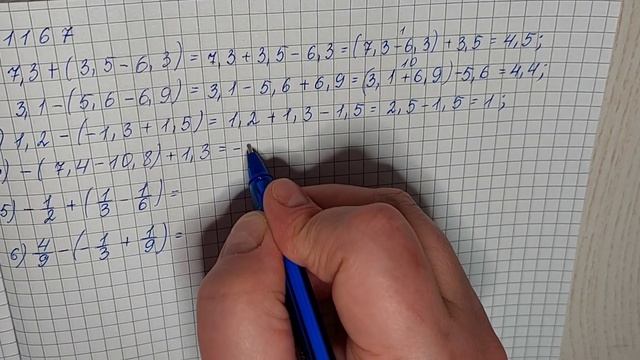 1167
7,3 + (3,5 - 6,3) = 7,3 + 3,5 - 6,3 = (7,3 - 6,3) + 3,5 = 4,5;
1
3,1 - (5,6 - 6,9) = 3,1 - 5,6 + 6,9 = (3,1 + 6,9) - 5,6 = 4,4;
10
) 1,2 - (-1,3 + 1,5) = 1,2 + 1,3 - 1,5 = 2,5 - 1,5 = 1;
) - (7,4 - 10,8) + 1,3 = -
5) - 1/2 + (1/3 - 1/6) =
6) 4/9 - (- 1/3 + 1/9) =